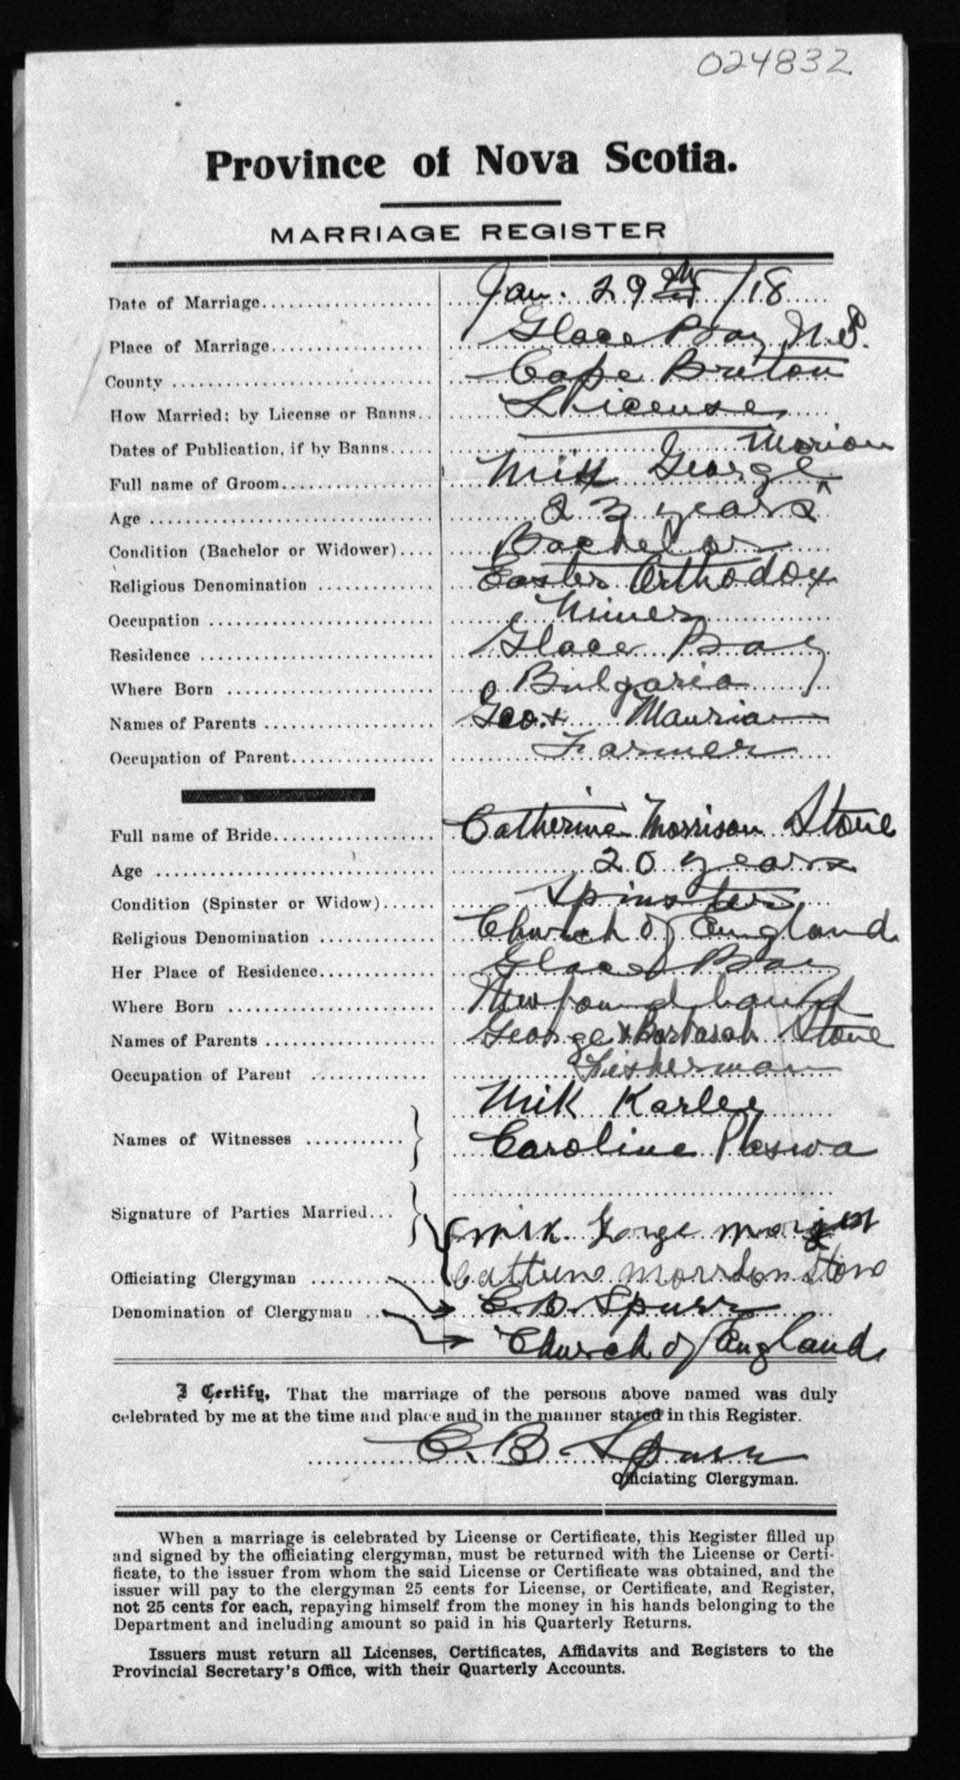 024832
Province of Nova Scotia.
MARRIAGE REGISTER
Date of Marriage Jan. 29th /18
Place of Marriage Glace Bay N.S.
County Cape Breton
How Married: by License or Banns License
Dates of Publication, if by Banns
Morion
Full name of Groom Mik George ^
Age 23 years
Condition (Bachelor or Widower) Bachelor
Religious Denomination Easter Orthodox
Occupation Miner
Residence Glace Bay
Where Born Bulgaria
Names of Parents Geo. + Mauria
Occupation of Parent Farmer
Full name of Bride Catherine Morrison Stone
Age 20 years
Condition (Spinster or Widow) Spinster
Religious Denomination Church of England
Her Place of Residence Glace Bay
Where Born Newfoundland
Names of Parents George & Stone
Occupation of Parent Fisherman
Mik Karley
Names of Witnesses
Caroline
Signature of Parties Married
Mik. Gorge
Officiating Clergyman Morrison Stone
Denomination of Clergyman C. B. Spurr
Church of England
I Certify, That the marriage of the persons above named was duly
celebrated by me at the time and place and in the manner stated in this Register.
C. B. Spurr
Officiating Clergyman.
When a marriage is celebrated by License or Certificate, this Register filled up
and signed by the officiating clergyman, must be returned with the License or Certi-
ficate, to the issuer from whom the said License or Certificate was obtained, and the
issuer will pay to the clergyman 25 cents for License, or Certificate, and Register,
not 25 cents for each, repaying himself from the money in his hands belonging to the
Department and including amount so paid in his Quarterly Returns.
Issuers must return all Licenses, Certificates, Affidavits and Registers to the
Provincial Secretary's Office, with their Quarterly Accounts.